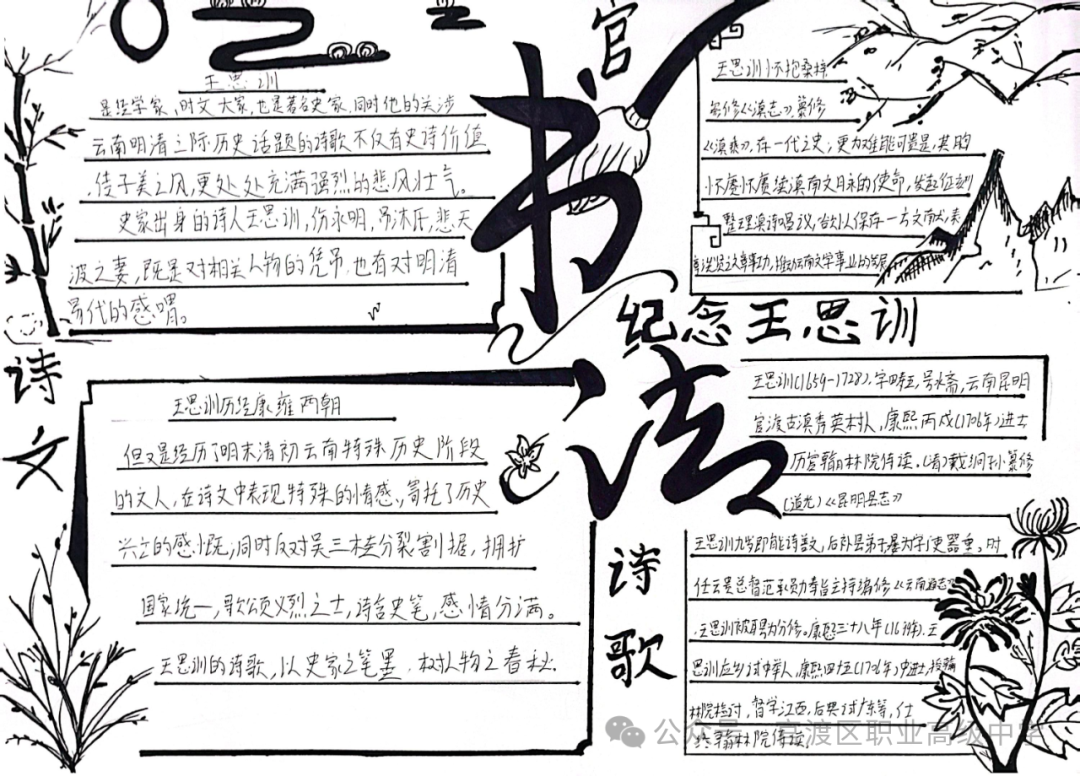 王思训
是经学家、时文大家,也是著名史家,同时他的关涉
云南明清之际历史话题的诗歌不仅有史诗价值
传子美之风,更处处充满强烈的悲风壮气。
史家出身的诗人王思训,伤永明,吊沐氏,悲天
波之妻,既是对相关人物的凭吊,也有对明清
易代的感喟。
官
书法
纪念王思训
王思训怀抱桑梓
纂修《滇志》,纂修
《滇乘》,存一代之史;更为难能可贵是,其胸
怀赓续滇南文月永的使命,发起征刻
整理滇诗倡议,
诗文
王思训历经康雍两朝
但又是经历了明末清初云南特殊历史阶段
的文人,在诗文中表现特殊的情感,寄托了历史
兴亡的感慨;同时反对吴三桂分裂割据,拥护
国家统一,歌颂义烈之士,诗含史笔,感情分满。
王思训的诗歌,以史家之笔墨,树人物之春秋.
王思训(1659-1728),字畴五,号永斋,云南昆明
官渡古滇秀英村人,康熙丙戌(1706年)进士
历官翰林院侍读.(清)戴纲孙纂修
(道光)《昆明县志》
诗歌
王思训九岁即能诗善文,后补县弟子
任云贵总督范承勋奉旨主持编修《云南通志》
,王思训被聘为分修。康熙三十八年
思训应乡试中举人,康熙四十五
林院检讨,督学江西,后典试广东等,仕
终翰林院侍读,
公众号·官渡区职业高级中学